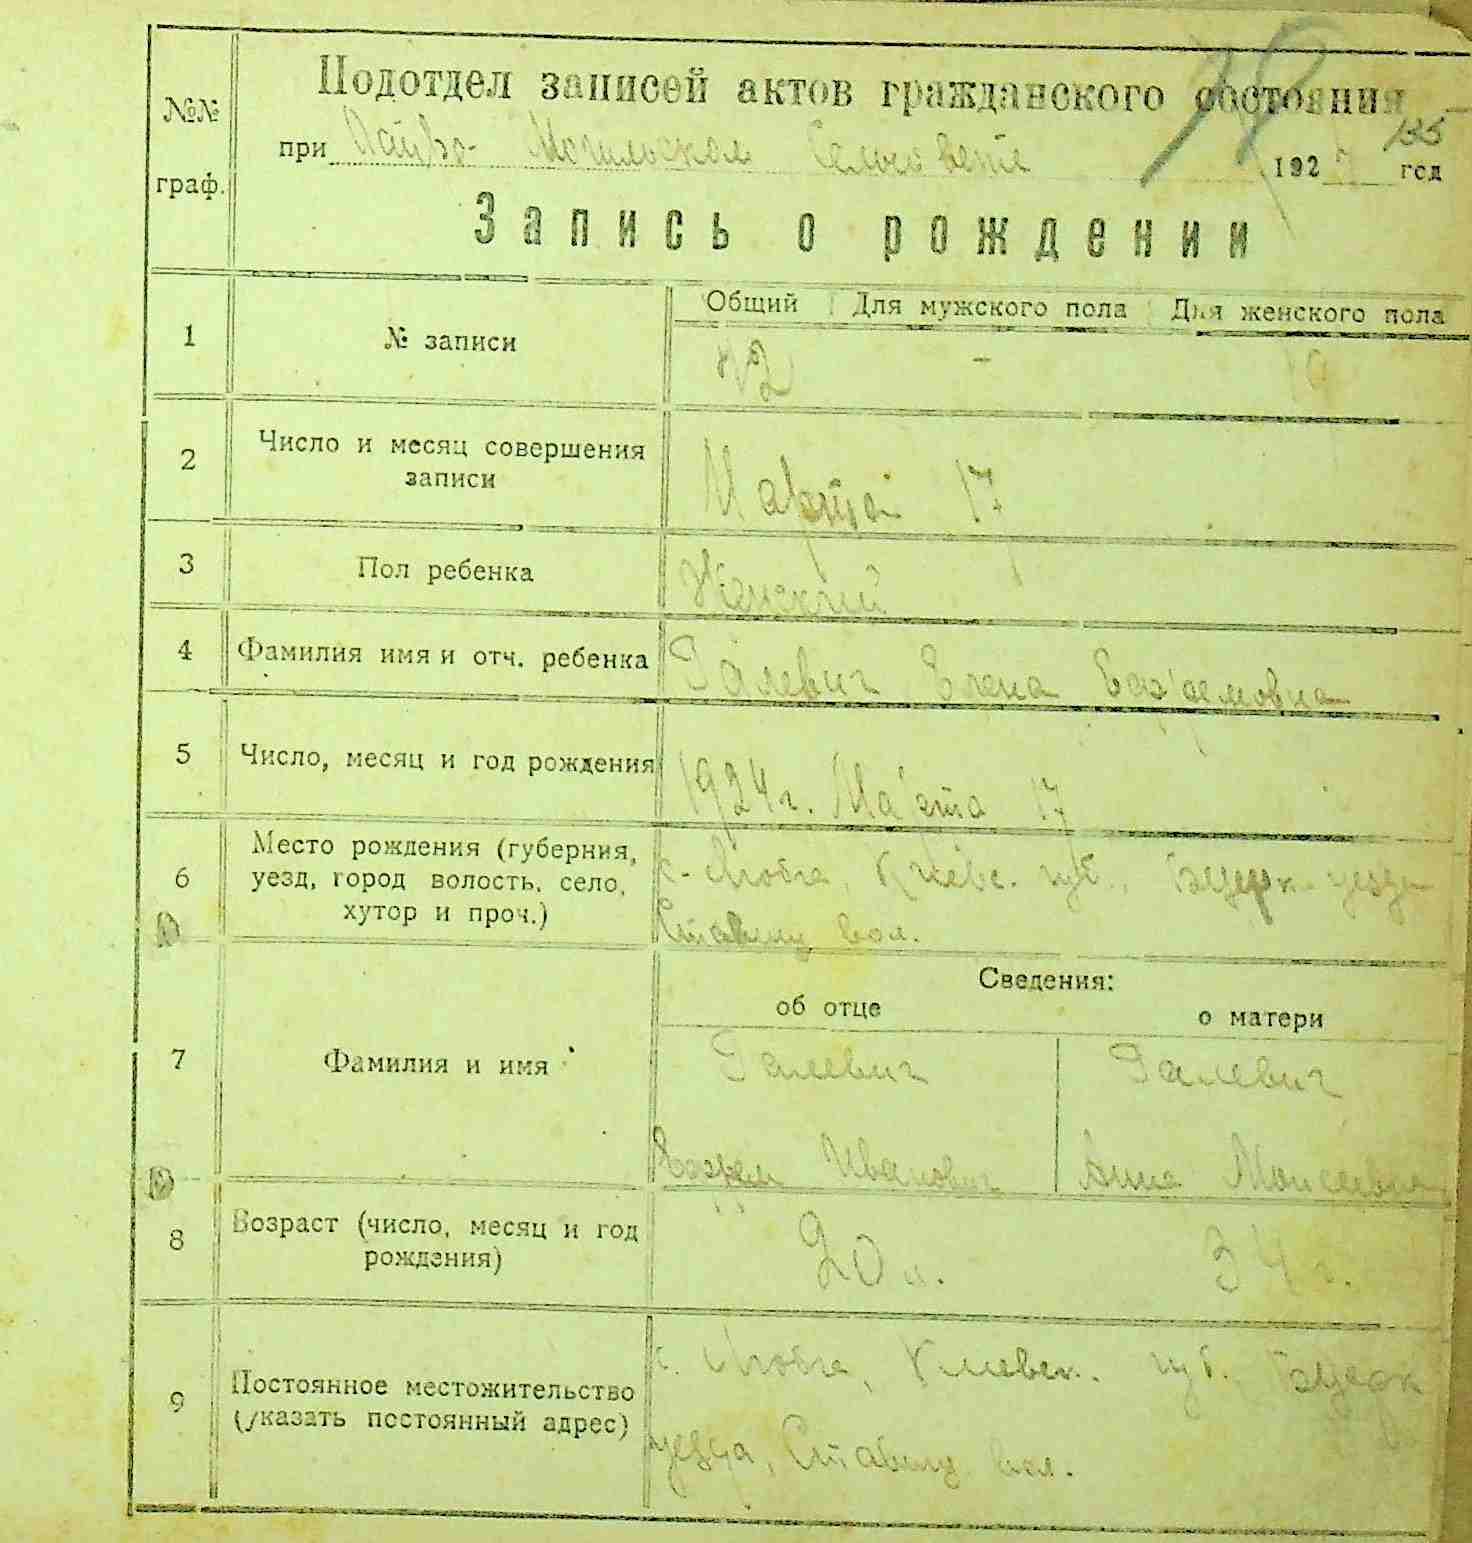 №№ граф.
Подотдел записей актов гражданского состояния
78
при Могильском Сельсовете 192 год
155
Запись о рождении
Общий Для мужского пола Для женского пола
1 № записи
-
2 Число и месяц совершения
записи
Марта 17
3 Пол ребенка Женский
4 Фамилия имя и отч. ребенка Галевич Елена
5 Число, месяц и год рождения 1924 г. Марта 17
6 Место рождения (губерния,
уезд, город волость, село,
хутор и проч.)
Киевс. губ., Бцерк. уезда
Ставищ. вол.
Сведения:
об отце о матери
7 Фамилия и имя
Галевич Галевич
Иванович Анна
8 Возраст (число, месяц и год
рождения)
20 л. 34 г.
9 Постоянное местожительство
(указать постоянный адрес)
Киевск. губ. Бцерк
уезда, Ставищ. вол.